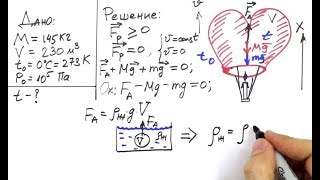 Дано:
M = 145 кг
V = 230 м³
t₀ = 0°C = 273 K
P₀ = 10⁵ Па
t - ?
Решение:
F⃗р ≥ 0
F⃗р = 0, { v⃗ = const
v⃗ = 0
F⃗A + Mg⃗ + mg⃗ = 0;
Ox: FA - Mg - mg = 0;
FA = ρж g V
F⃗A
ρж
V
⇒ ρж = ρ
F⃗A
Mg⃗
mg⃗
t₀
t
X